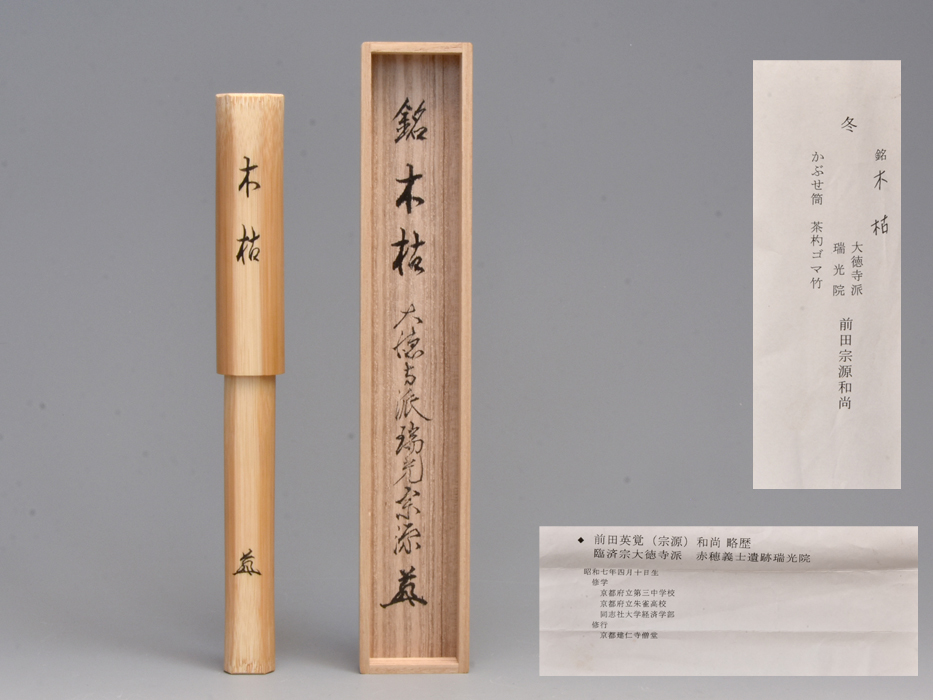 木枯
銘木枯大徳寺派瑞光宗源
冬
銘 木枯
大徳寺派
瑞光院 前田宗源和尚
かぶせ筒 茶杓ゴマ竹
◆ 前田英覚（宗源）和尚 略歴
臨済宗大徳寺派 赤穂義士遺跡瑞光院
昭和七年四月十日生
修学
京都府立第三中学校
京都府立朱雀高校
同志社大学経済学部
修行
京都建仁寺僧堂